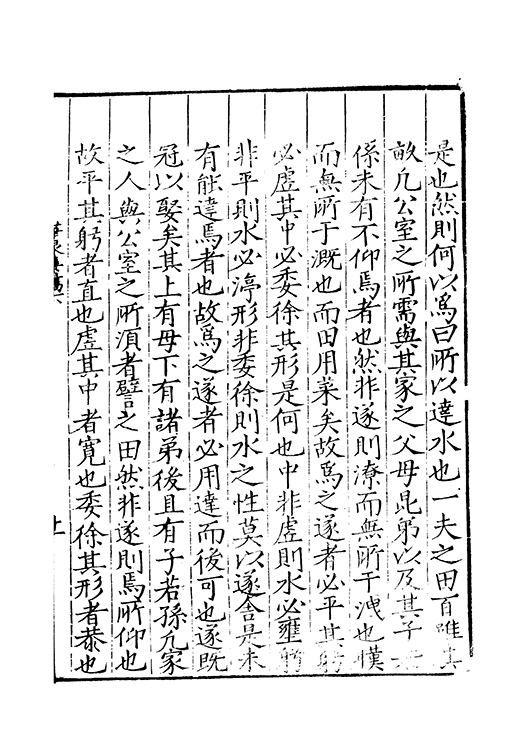 是也然則何以爲曰所以達水也一夫之田百畮其
畝凡公室之所需與其家之父母昆弟以及其子
係未有不仰焉者也然非遂則潦而無所于洩也熯
而無所于溉也而田用菜矣故爲之遂者必平其躬
必虛其中必委徐其形是何也中非虛則水必壅躬
非平則水必渟形非委徐則水之性莫以遂舍是未
有能達焉者也故爲之遂者必用達而後可也遂既
冠以娶矣其上有母下有諸弟後且有子若孫凡家
之人與公室之所湏者譬之田然非遂則焉所仰也
故平其躬者直也虛其中者寬也委徐其形者恭也